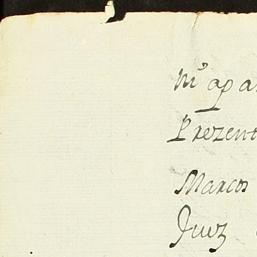 m.º apa
Prezent
Marcos
Juiz